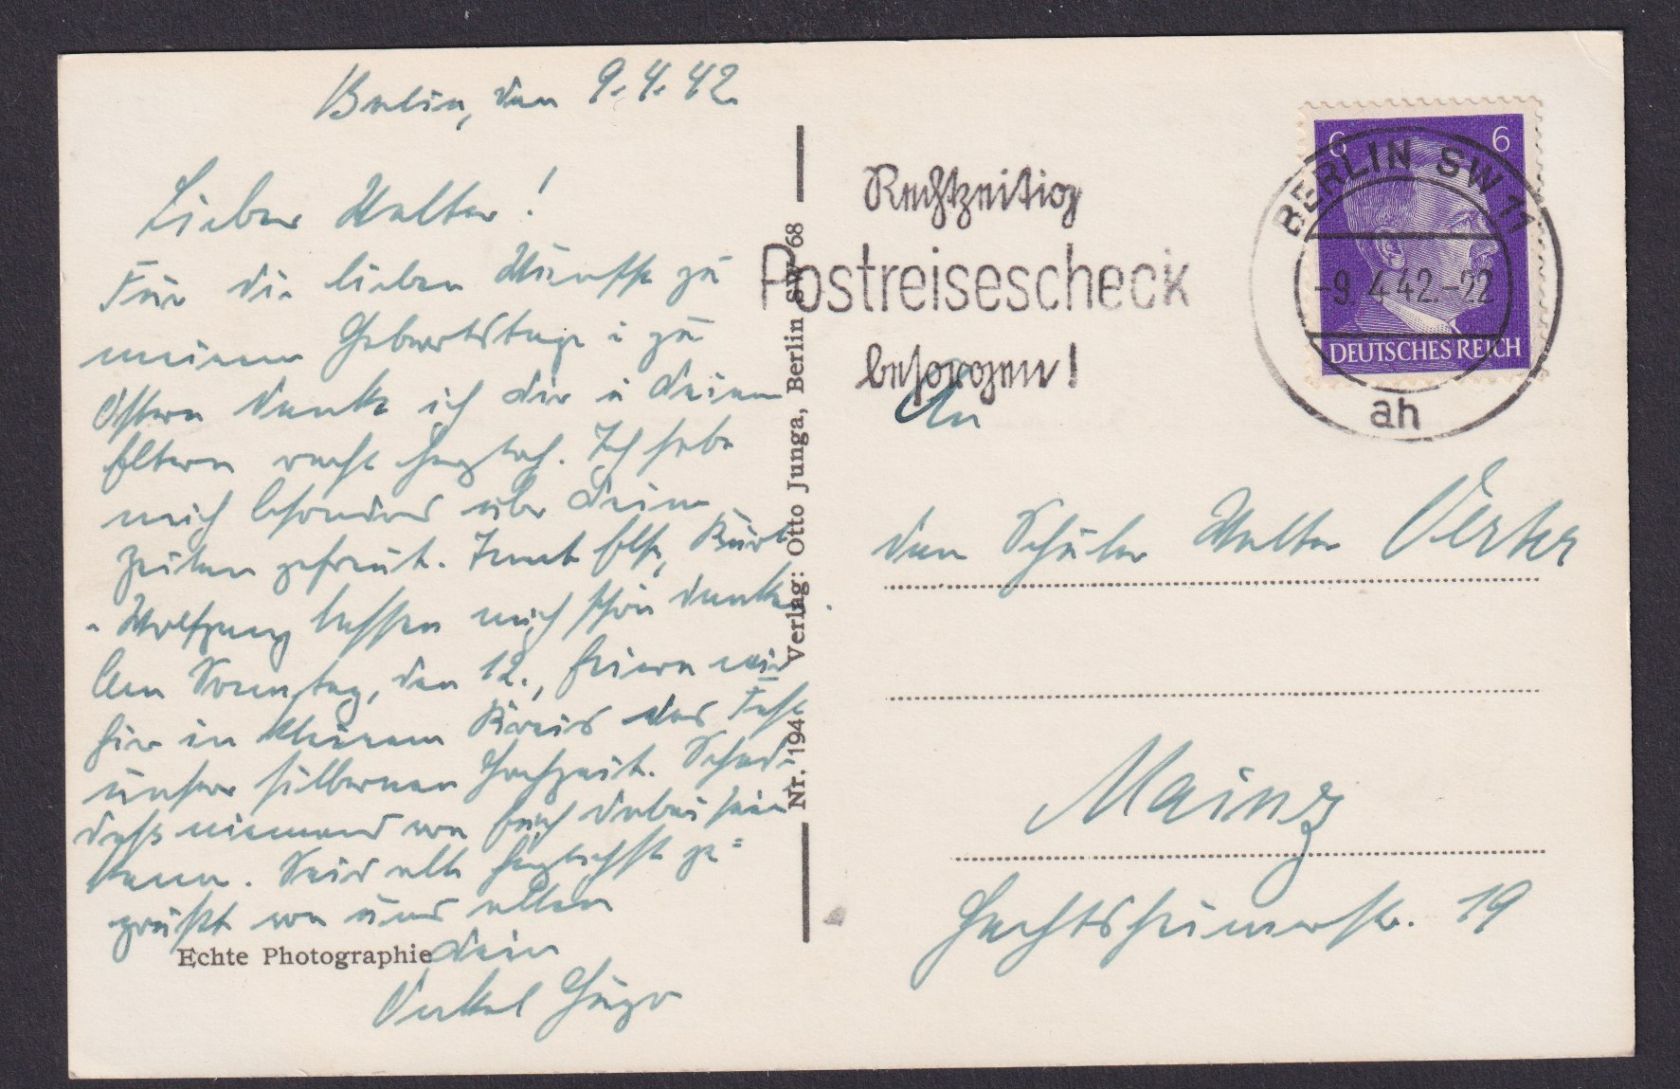 Berlin, den 9.4.42.
Lieber Walter!
Für die lieben Wünsche zu
meinem Geburtstage u zu
Ostern danke ich Dir u Deinen
Eltern recht herzlich. Ich habe
mich besonders über Deine
Zeilen gefreut. Tante Else, Kurt
u Wolfgang lassen auch schön danken.
Am Sonntag, den 12., feiern wir
hier in kleinem Kreis das Fest
unserer silbernen Hochzeit. Schade
daß niemand von Euch dabei sein
kann. Seid alle herzlichst ge=
grüßt von uns allen
Dein
Onkel Hugo
Echte Photographie
Nr. 194 Verlag: Otto Junga, Berlin SW 68
Rechtzeitig
Postreisescheck
besorgen!
6 6
DEUTSCHES REICH
BERLIN SW 11
-9.4.42.-22
ah
An
den Schüler Walter
Mainz
Hechtsheimerstr. 19